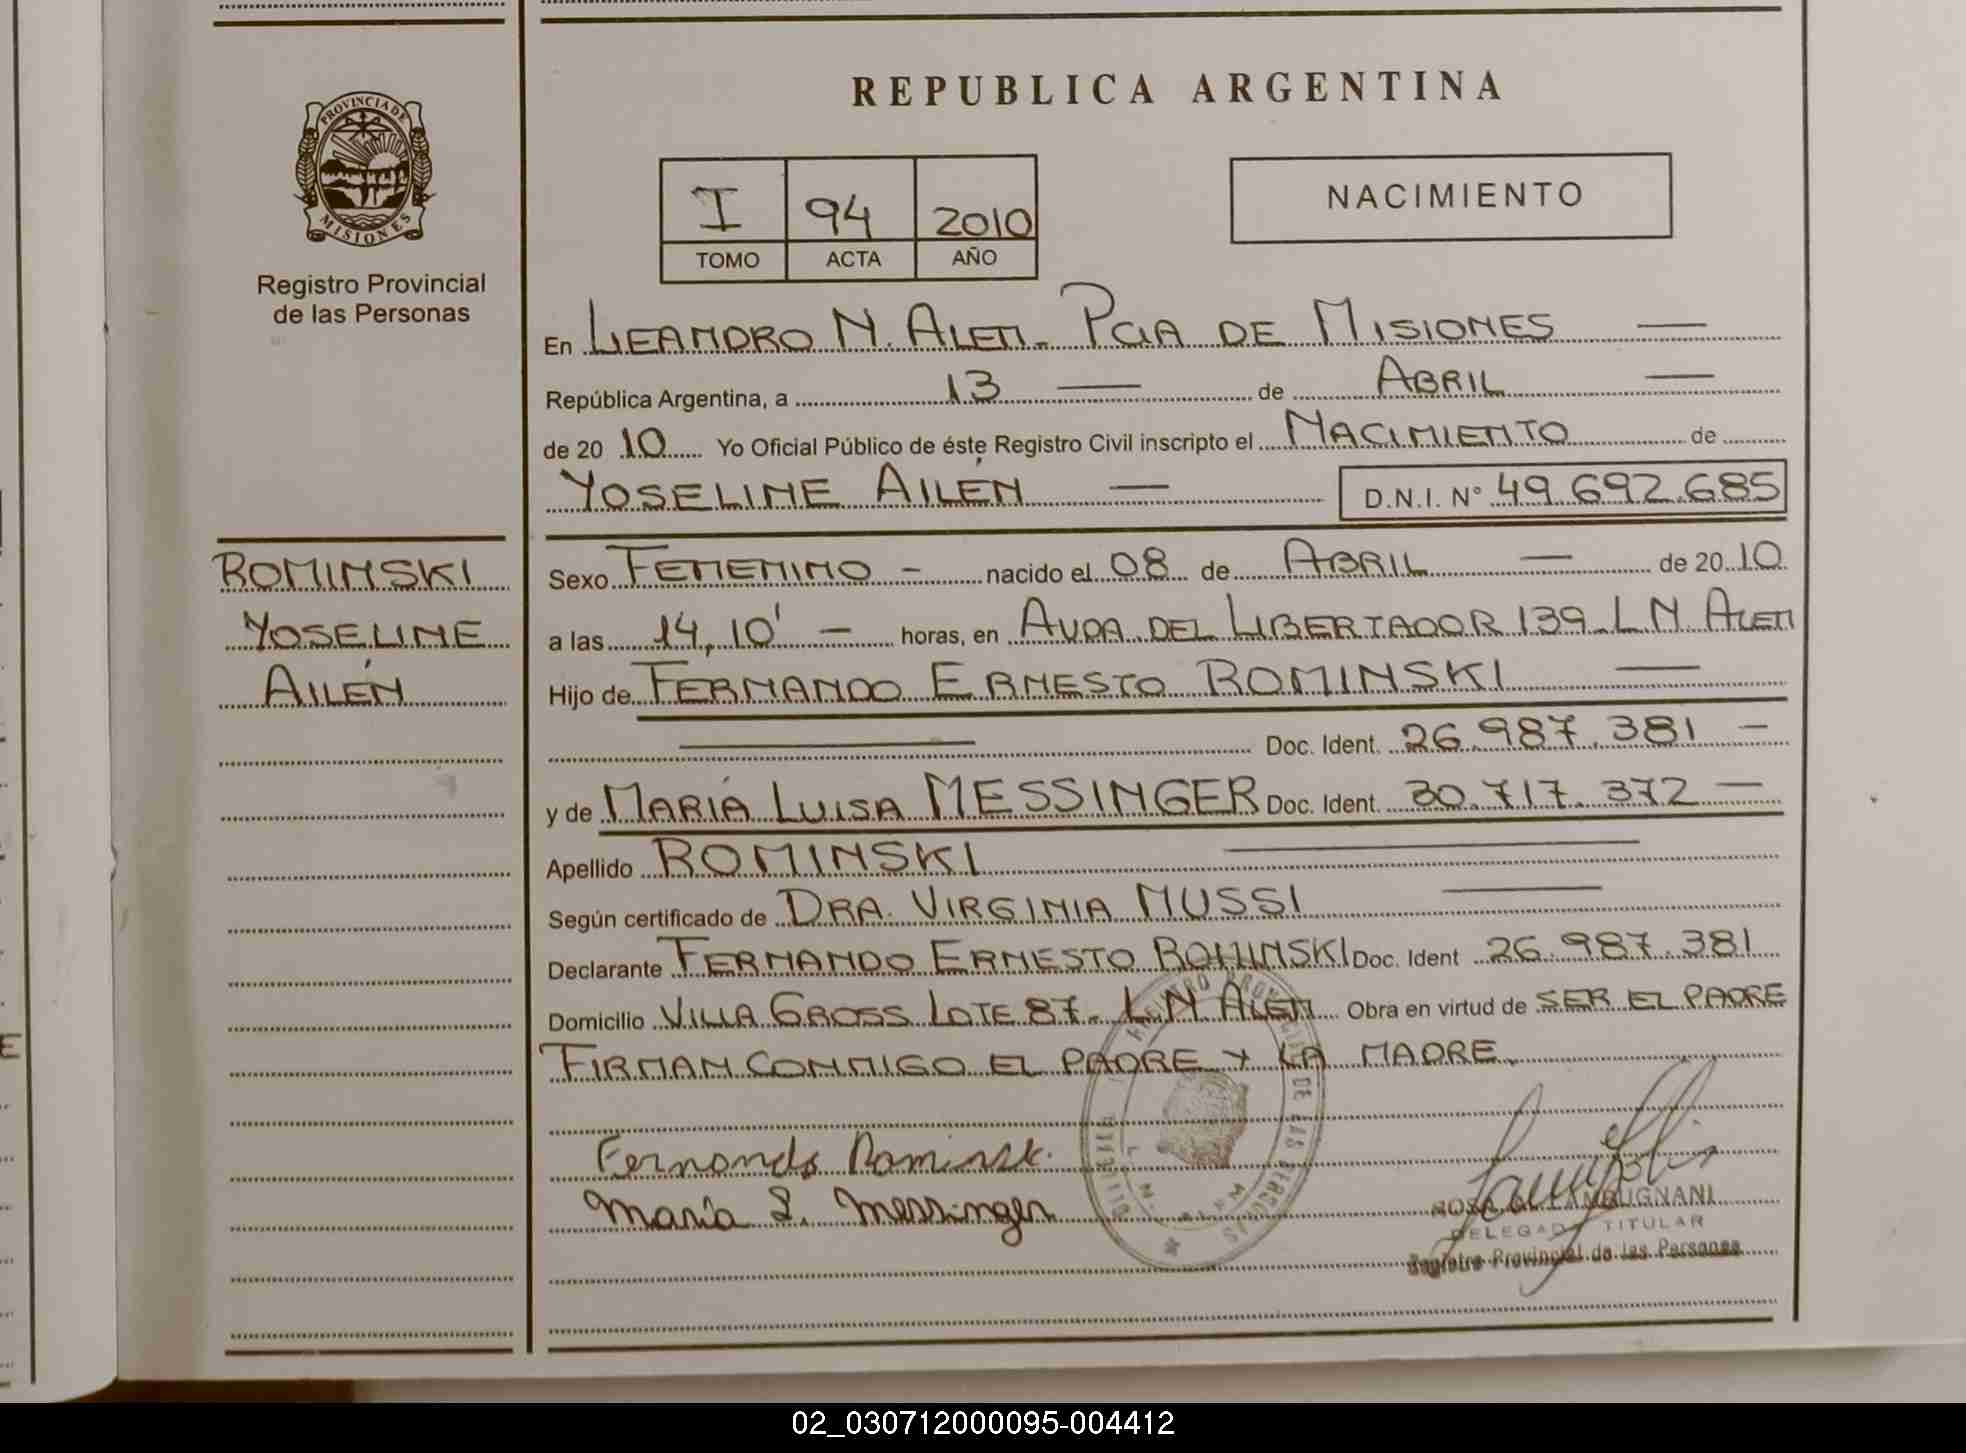 REPUBLICA ARGENTINA
PROVINCIA DE
MISIONES
Registro Provincial
de las Personas
I 94 2010
TOMO ACTA AÑO
NACIMIENTO
En LEANDRO N. ALEM - PCIA DE MISIONES —
República Argentina, a 13 — de ABRIL —
de 20 10 Yo Oficial Público de éste Registro Civil inscripto el NACIMIENTO de
YOSELINE AILÉN — D.N.I. N° 49.692.685
ROMINSKI
YOSELINE
AILÉN
Sexo FEMENINO - nacido el 08 de ABRIL — de 20 10
a las 14,10' — horas, en AVDA DEL LIBERTADOR 139 - L N ALEM
Hijo de FERNANDO ERNESTO ROMINSKI —
— Doc. Ident. 26.987.381 -
y de MARÍA LUISA MESSINGER Doc. Ident. 30.717.372 —
Apellido ROMINSKI —
Según certificado de DRA. VIRGINIA MUSSI —
Declarante FERNANDO ERNESTO ROMINSKI Doc. Ident 26.987.381
Domicilio VILLA GROSS LOTE 87 - L N ALEM Obra en virtud de SER EL PADRE
FIRMAN CONMIGO EL PADRE Y LA MADRE.
Fernando Rominsk.
María L. Messinger
DELEGADA TITULAR
Registro Provincial de las Personas
02_030712000095-004412